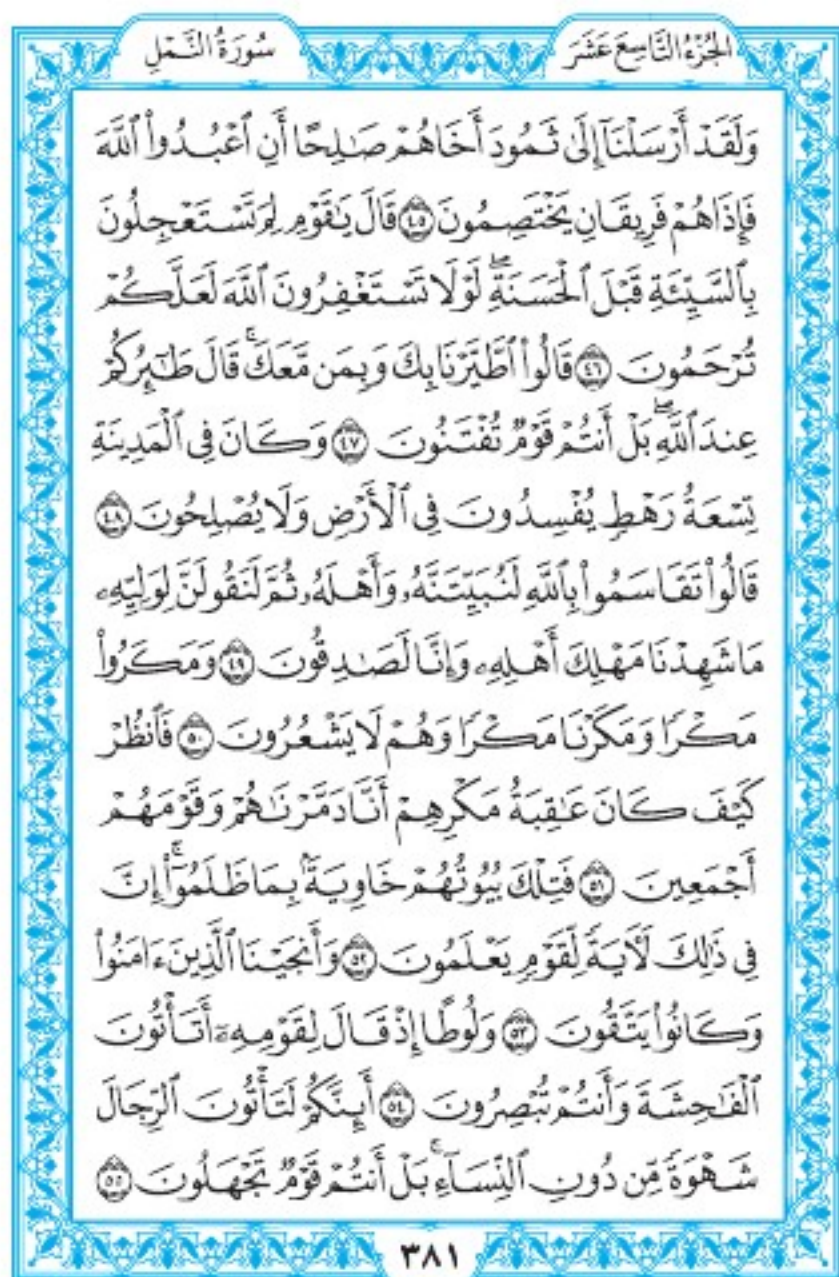 الجُزْءُ التَّاسِعَ عَشَرَ
سُورَةُ النَّمْلِ
وَلَقَدْ أَرْسَلْنَآ إِلَىٰ ثَمُودَ أَخَاهُمْ صَٰلِحًا أَنِ ٱعْبُدُوا۟ ٱللَّهَ
فَإِذَا هُمْ فَرِيقَانِ يَخْتَصِمُونَ ٤٥ قَالَ يَٰقَوْمِ لِمَ تَسْتَعْجِلُونَ
بِٱلسَّيِّئَةِ قَبْلَ ٱلْحَسَنَةِۖ لَوْلَا تَسْتَغْفِرُونَ ٱللَّهَ لَعَلَّكُمْ
تُرْحَمُونَ ٤٦ قَالُوا۟ ٱطَّيَّرْنَا بِكَ وَبِمَن مَّعَكَۚ قَالَ طَٰٓئِرُكُمْ
عِندَ ٱللَّهِۖ بَلْ أَنتُمْ قَوْمٌ تُفْتَنُونَ ٤٧ وَكَانَ فِى ٱلْمَدِينَةِ
تِسْعَةُ رَهْطٍ يُفْسِدُونَ فِى ٱلْأَرْضِ وَلَا يُصْلِحُونَ ٤٨
قَالُوا۟ تَقَاسَمُوا۟ بِٱللَّهِ لَنُبَيِّتَنَّهُۥ وَأَهْلَهُۥ ثُمَّ لَنَقُولَنَّ لِوَلِيِّهِۦ
مَا شَهِدْنَا مَهْلِكَ أَهْلِهِۦ وَإِنَّا لَصَٰدِقُونَ ٤٩ وَمَكَرُوا۟
مَكْرًا وَمَكَرْنَا مَكْرًا وَهُمْ لَا يَشْعُرُونَ ٥٠ فَٱنظُرْ
كَيْفَ كَانَ عَٰقِبَةُ مَكْرِهِمْ أَنَّا دَمَّرْنَٰهُمْ وَقَوْمَهُمْ
أَجْمَعِينَ ٥١ فَتِلْكَ بُيُوتُهُمْ خَاوِيَةًۢ بِمَا ظَلَمُوٓا۟ۚ إِنَّ
فِى ذَٰلِكَ لَءَايَةً لِّقَوْمٍ يَعْلَمُونَ ٥٢ وَأَنجَيْنَا ٱلَّذِينَ ءَامَنُوا۟
وَكَانُوا۟ يَتَّقُونَ ٥٣ وَلُوطًا إِذْ قَالَ لِقَوْمِهِۦٓ أَتَأْتُونَ
ٱلْفَٰحِشَةَ وَأَنتُمْ تُبْصِرُونَ ٥٤ أَئِنَّكُمْ لَتَأْتُونَ ٱلرِّجَالَ
شَهْوَةً مِّن دُونِ ٱلنِّسَآءِۚ بَلْ أَنتُمْ قَوْمٌ تَجْهَلُونَ ٥٥
٣٨١